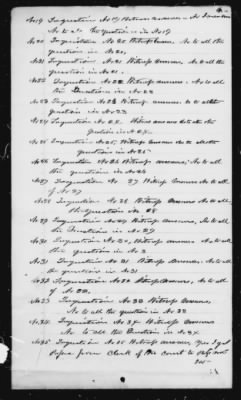 No19 Inquestion No 19 Witness answers - No
No to all the questions in No19
No20 Inquestion No 20 Witness answers No to all the
question in No 20,
No21 Inquestion No 21 Witness answers, No to all the
question in No 21 -
No22 Inquestion No 22 Witness answers - No to all
the Questions in No 22
No23 Inquestion No 23 Witness answers, No to all the
question in No 23
No24 Inquestion No 24 Witness answers No to all the
Question in No 24
No25 Inquestion No 25, Witness answers No to all the
question in No 25
No26 Inquestion No 26 Witness answers, No to all
the questions in No 26
No27 Inquestion No 27 Witness answers No to all
of No 27
No28 Inquestion No 28 Witness answers No to all,
the Question No 28
No29 Inquestion No 29 Witness answers, No to all
the Question in No 29
No30 Inquestion No 30, Witness answers, No to all
the question in No 3
No31 Inquestion No 31 Witness answers, No to all
the question in No 31
No32 Inquestion No 32 Witness answers, No to all
of No 32,
No33 Inquestion No 33 Witness answers,
No to all the question in No 33
No34 Inquestion No 34 Witness answers
No to all the Question in No 34
No35 Inquestion No 35 Witness answers, Yes I got
from Clerk of the Court to